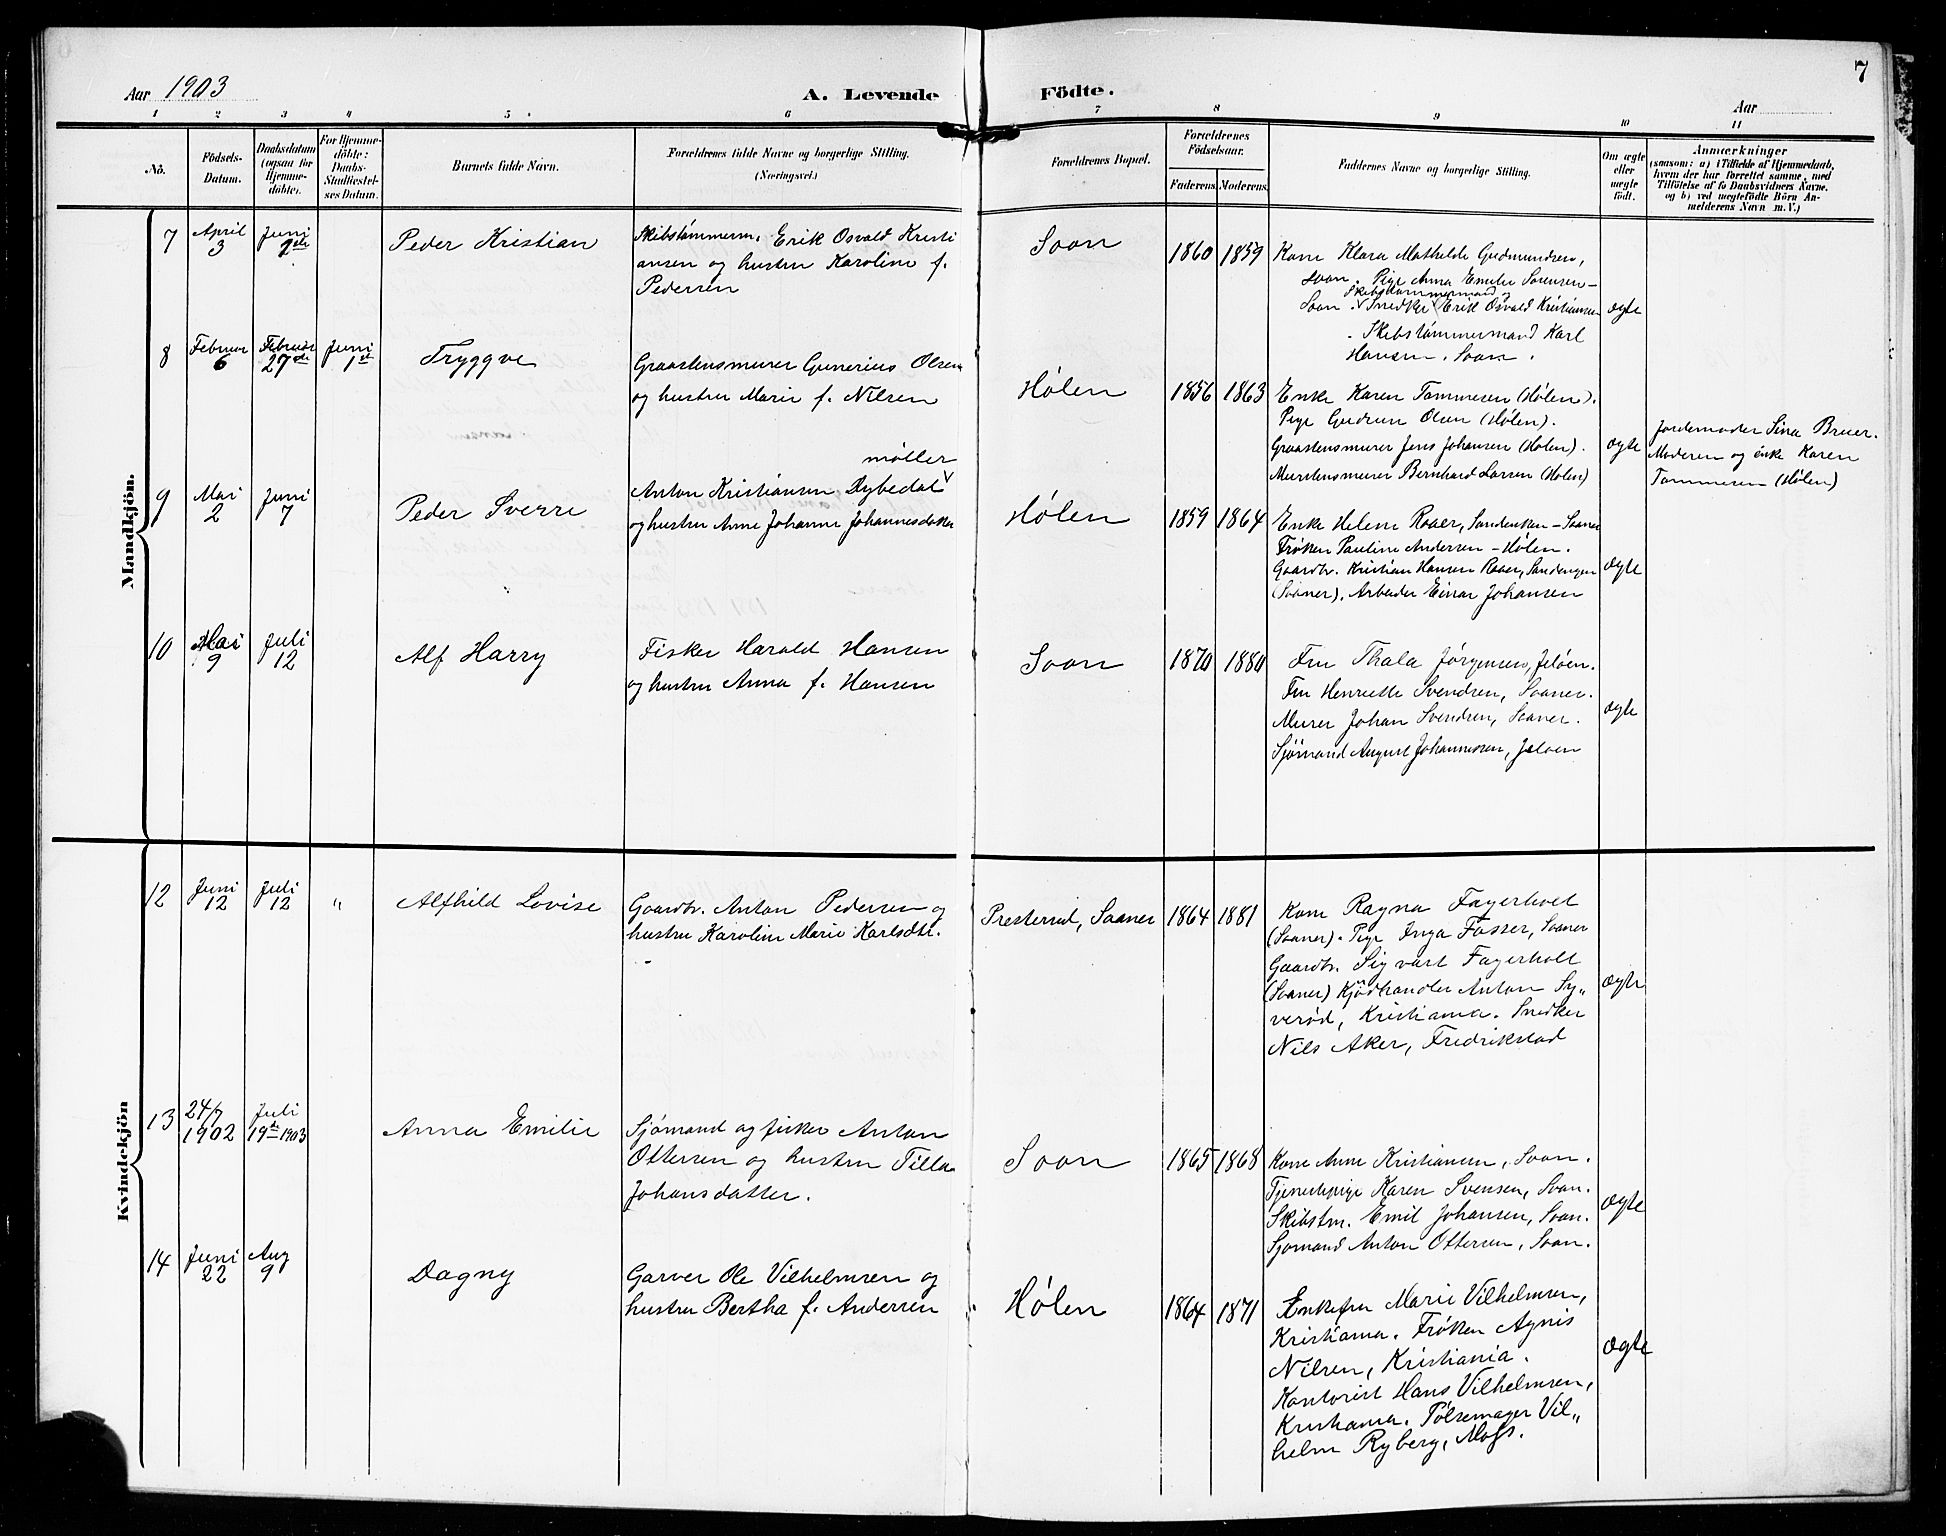 7
Aar 1903
A. Levende Födte.
Aar
1 2 3 4 5 6 7 8 9 10 11
No.
Födsels-
Datum.
Daabsdatum
(ogsaa for
Hjemme-
döbte).
For Hjemme-
döbte:
Daabs-
Stadfæstel-
ses Datum.
Barnets fulde Navn.
Forældrenes fulde Navne og borgerlige Stilling.
(Næringsvei.)
Forældrenes Bopæl.
Forældrenes
Födselsaar.
Faderens. Moderens.
Faddernes Navne og borgerlige Stilling.
Om ægte
eller
uægte
født.
Anmærkninger
(saasom: a) i Tilfælde af Hjemmedaab,
hvem der har forrettet samme, med
Tilföielse af to Daabsvidners Navne,
og b) ved uegtefödte Börn An-
melderens Navn m. V.)
Mandkjön.
7
April
3
Juni
Peder Kristian
Skibstømmerm. Erik Osvald Kristi
ansen og hustru Karoline f.
Pedersen
Soon
1860 1859
Kone Klara Mathilde Gudmundsen,
Soon. Pige Anna Emilie Sørensen-
Skibstømmermand
Soon. Snedker Erik Osvald Kristiansen
. Skibstømmermand Karl
Hansen. Soon.
ægte
8
Februar
6
Februar
27de
Juni
1st
Tryggve
Graastensmurer Gunerius Olsen
og hustru Marie f. Nilsen
Hølen
1856 1863
Enke Karen Tommesen (Hølen).
Pige Gudrun Olsen (Hølen).
Graastensmurer Jens Johansen (Hølen).
Murstensmurer Bernhard Larsen (Hølen)
ægte
Jordemoder Lina Bruer.
Moderen og enke Karen
Tommesen (Hølen)
9
Mai
2
Juni
7
Peder Sverre
møller
Anton Kristiansen Dybedal
og hustru Anne Johanne Johannesdatter
Hølen
1859 1864
Enke Helene Roaer, - Soaner
Frøken Pauline Andersen - Hølen.
Gaardbr. Kristian Hansen Roaer, Sandengen
(Soaner). Arbeider Einar Johansen
ægte
10
Mai
9
Juli
12
Alf Harry
Fisker Harald Hansen
og hustru Anna f. Hansen
Soon
1870 1880
Fru Thala Jørgensen, Jeløen.
Fru Henriette Svendsen, Soaner.
Murer Johan Svendsen, Soaner.
Sjømand August Johannessen, Jeløen
ægte
Kvindekjön
12
Juni
12
Juli
12
"
Alfhild Lovise
Gaardbr. Anton Pedersen og
hustru Karoline Marie Karlsdtr.
Presterud, Soaner
1864 1881
Kone Ragna Fagerholt
(Soaner). Pige Inga Fosser, Soaner
Gaardbr. Sigvart Fagerholt
(Soaner) Kjødhandler Anton Sy„
verød, Kristiania. Snedker
Nils Aker, Fredrikstad
ægte
13
24/7
1902
Juli
19de 1903
Anna Emilie
Sjømand og fisker Anton
Ottersen og hustru Tilla
Johansdatter.
Soon
1865 1868
Kone Anne Kristiansen, Soon.
Tjenestepige Karen Svensen, Soon.
Skibstm. Emil Johansen, Soon.
Sjømand Anton Ottersen, Soon.
ægte
14
Juni
22
Aug
9
Dagny
Garver Ole Vilhelmsen og
hustru Bertha f. Andersen
Hølen
1864 1871
Enkefru Marie Vilhelmsen,
Kristiania. Frøken Agnis
Nilsen, Kristiania.
Kontorist Hans Vilhelmsen,
Kristiania. Pølsemager Vil„
helm Ryberg, Moss.
ægte